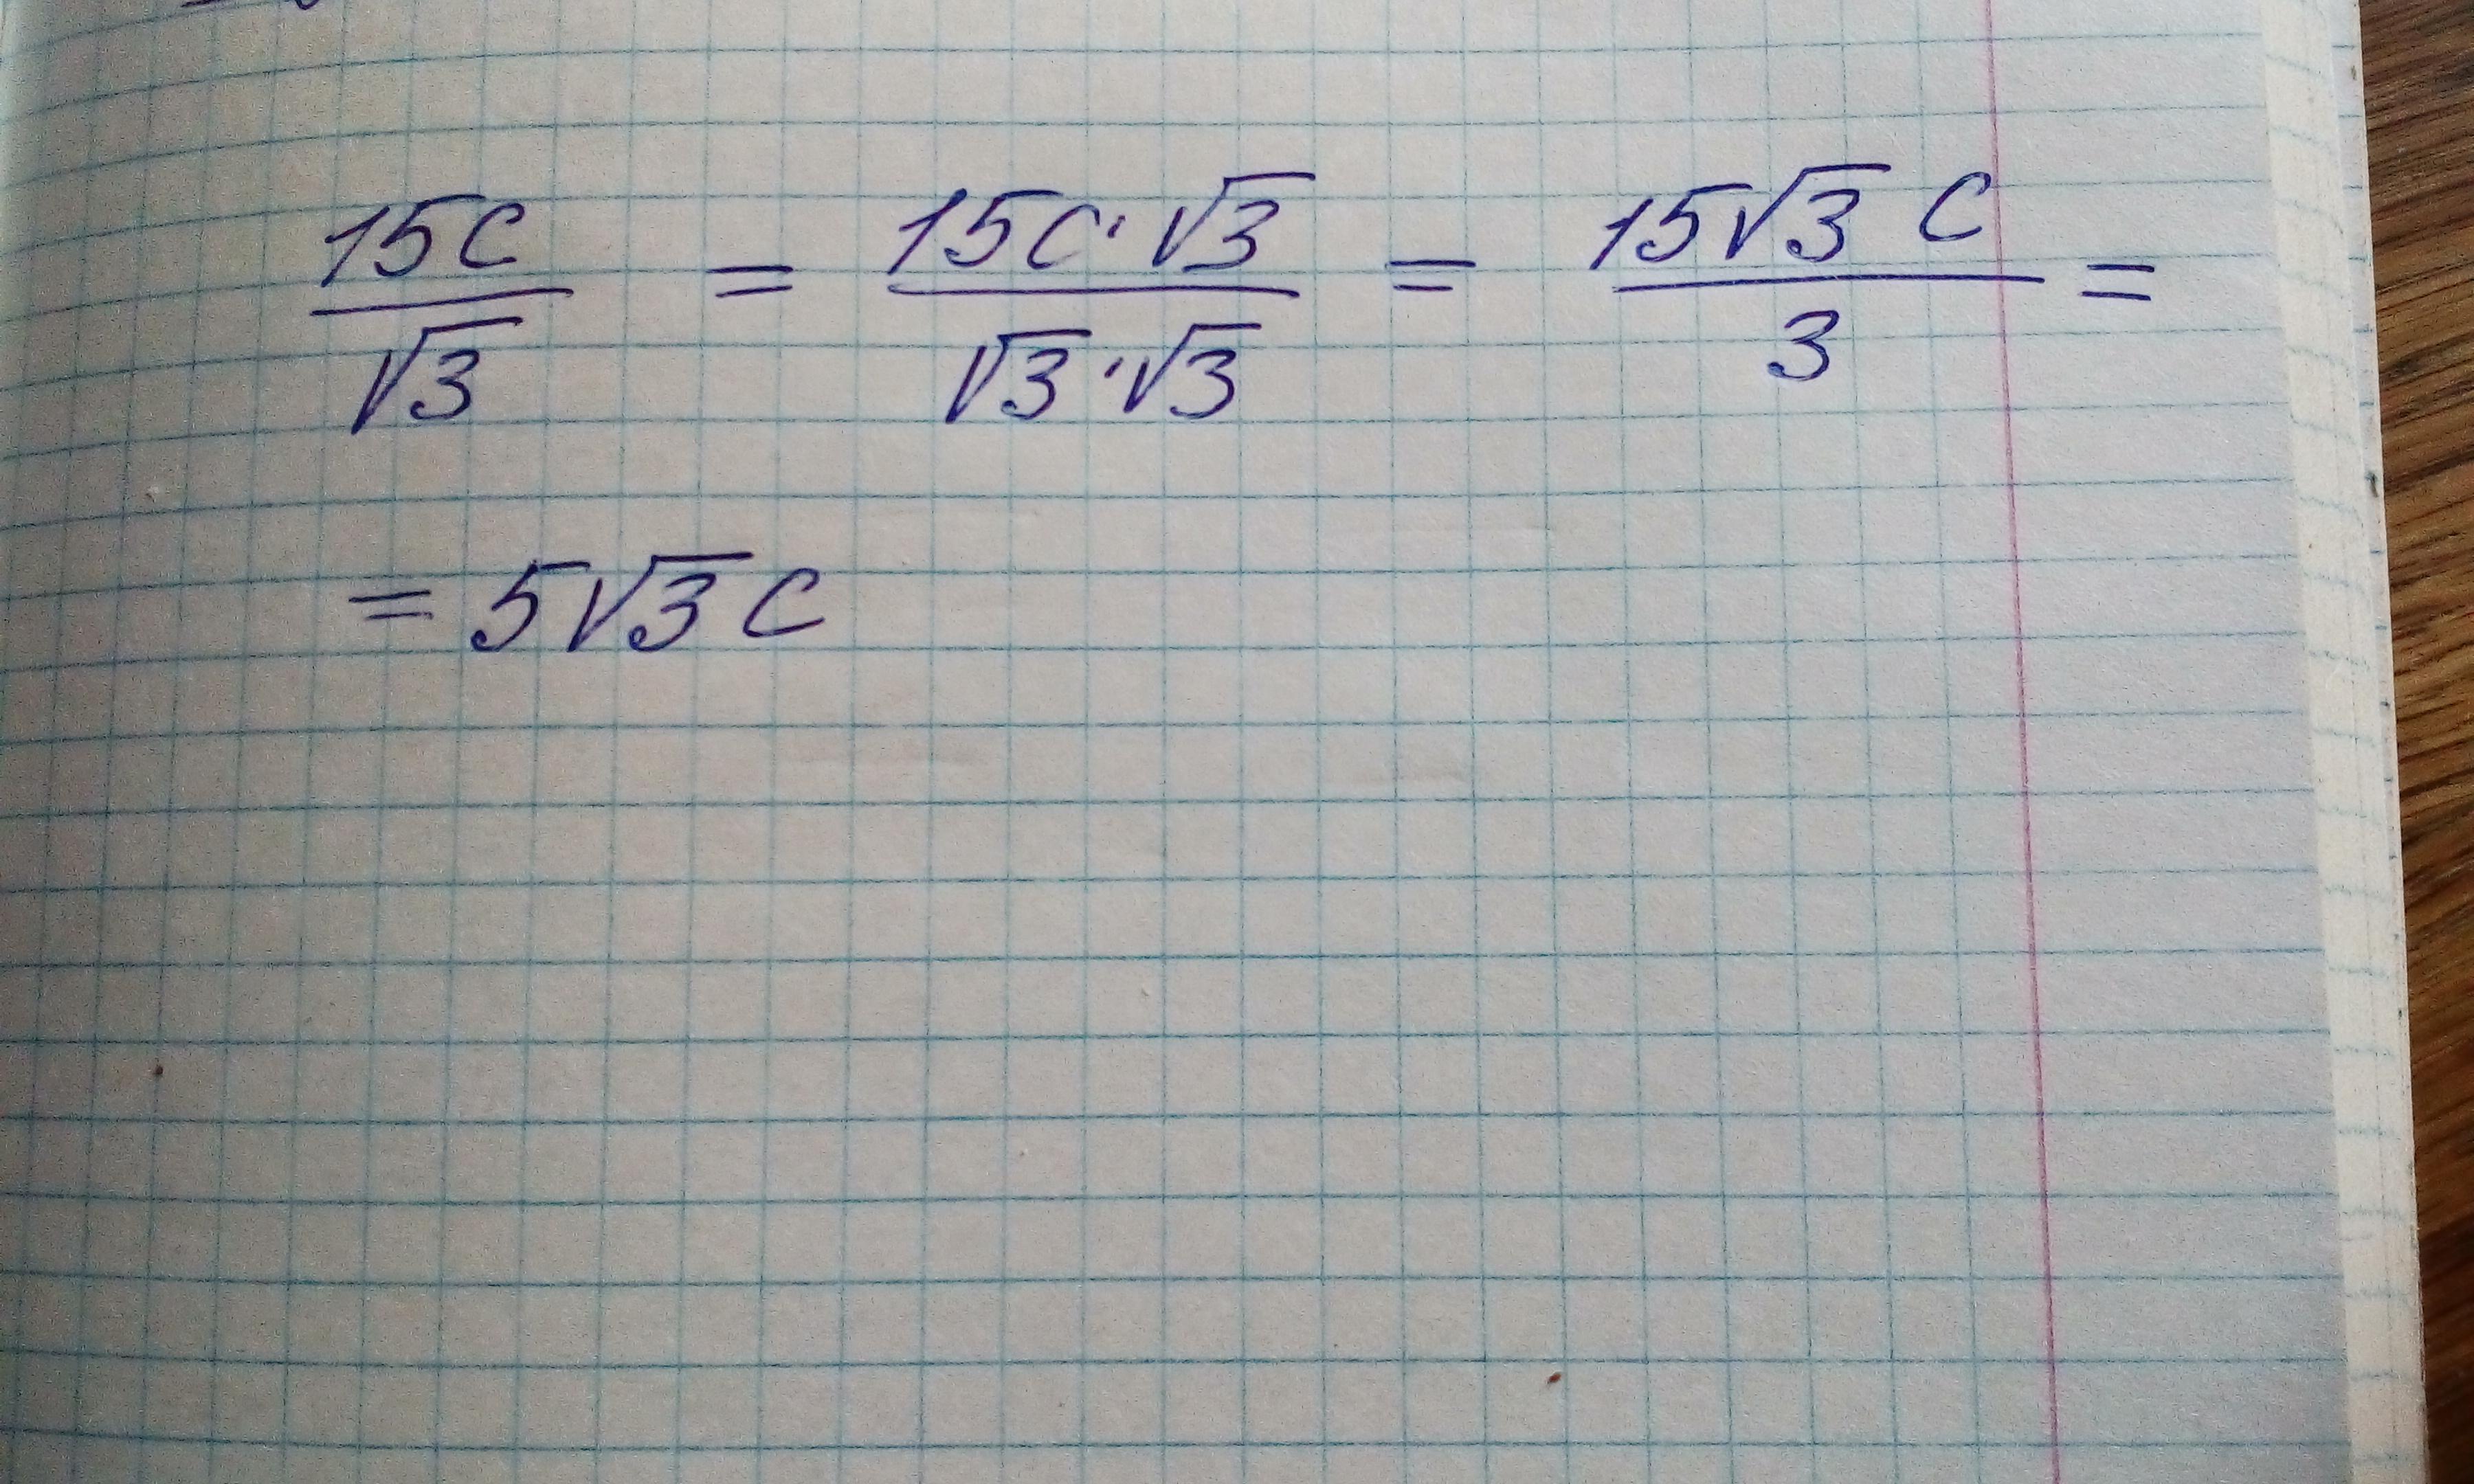 15c/√3 = 15c·√3/√3·√3 = 15√3 c/3 =
= 5√3 c